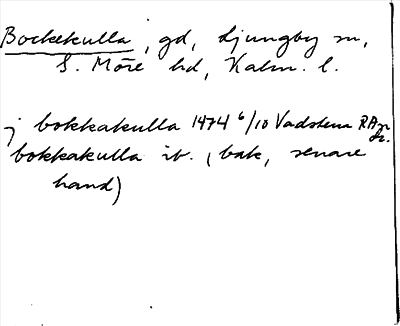 Bockekulla, gd, Ljungby sn,
S. Möre hd, Kalm. l.
j bokkakulla 1474 6/10 Vadstena RAp
or.
bokkakulla ib. (bak, senare
hand)